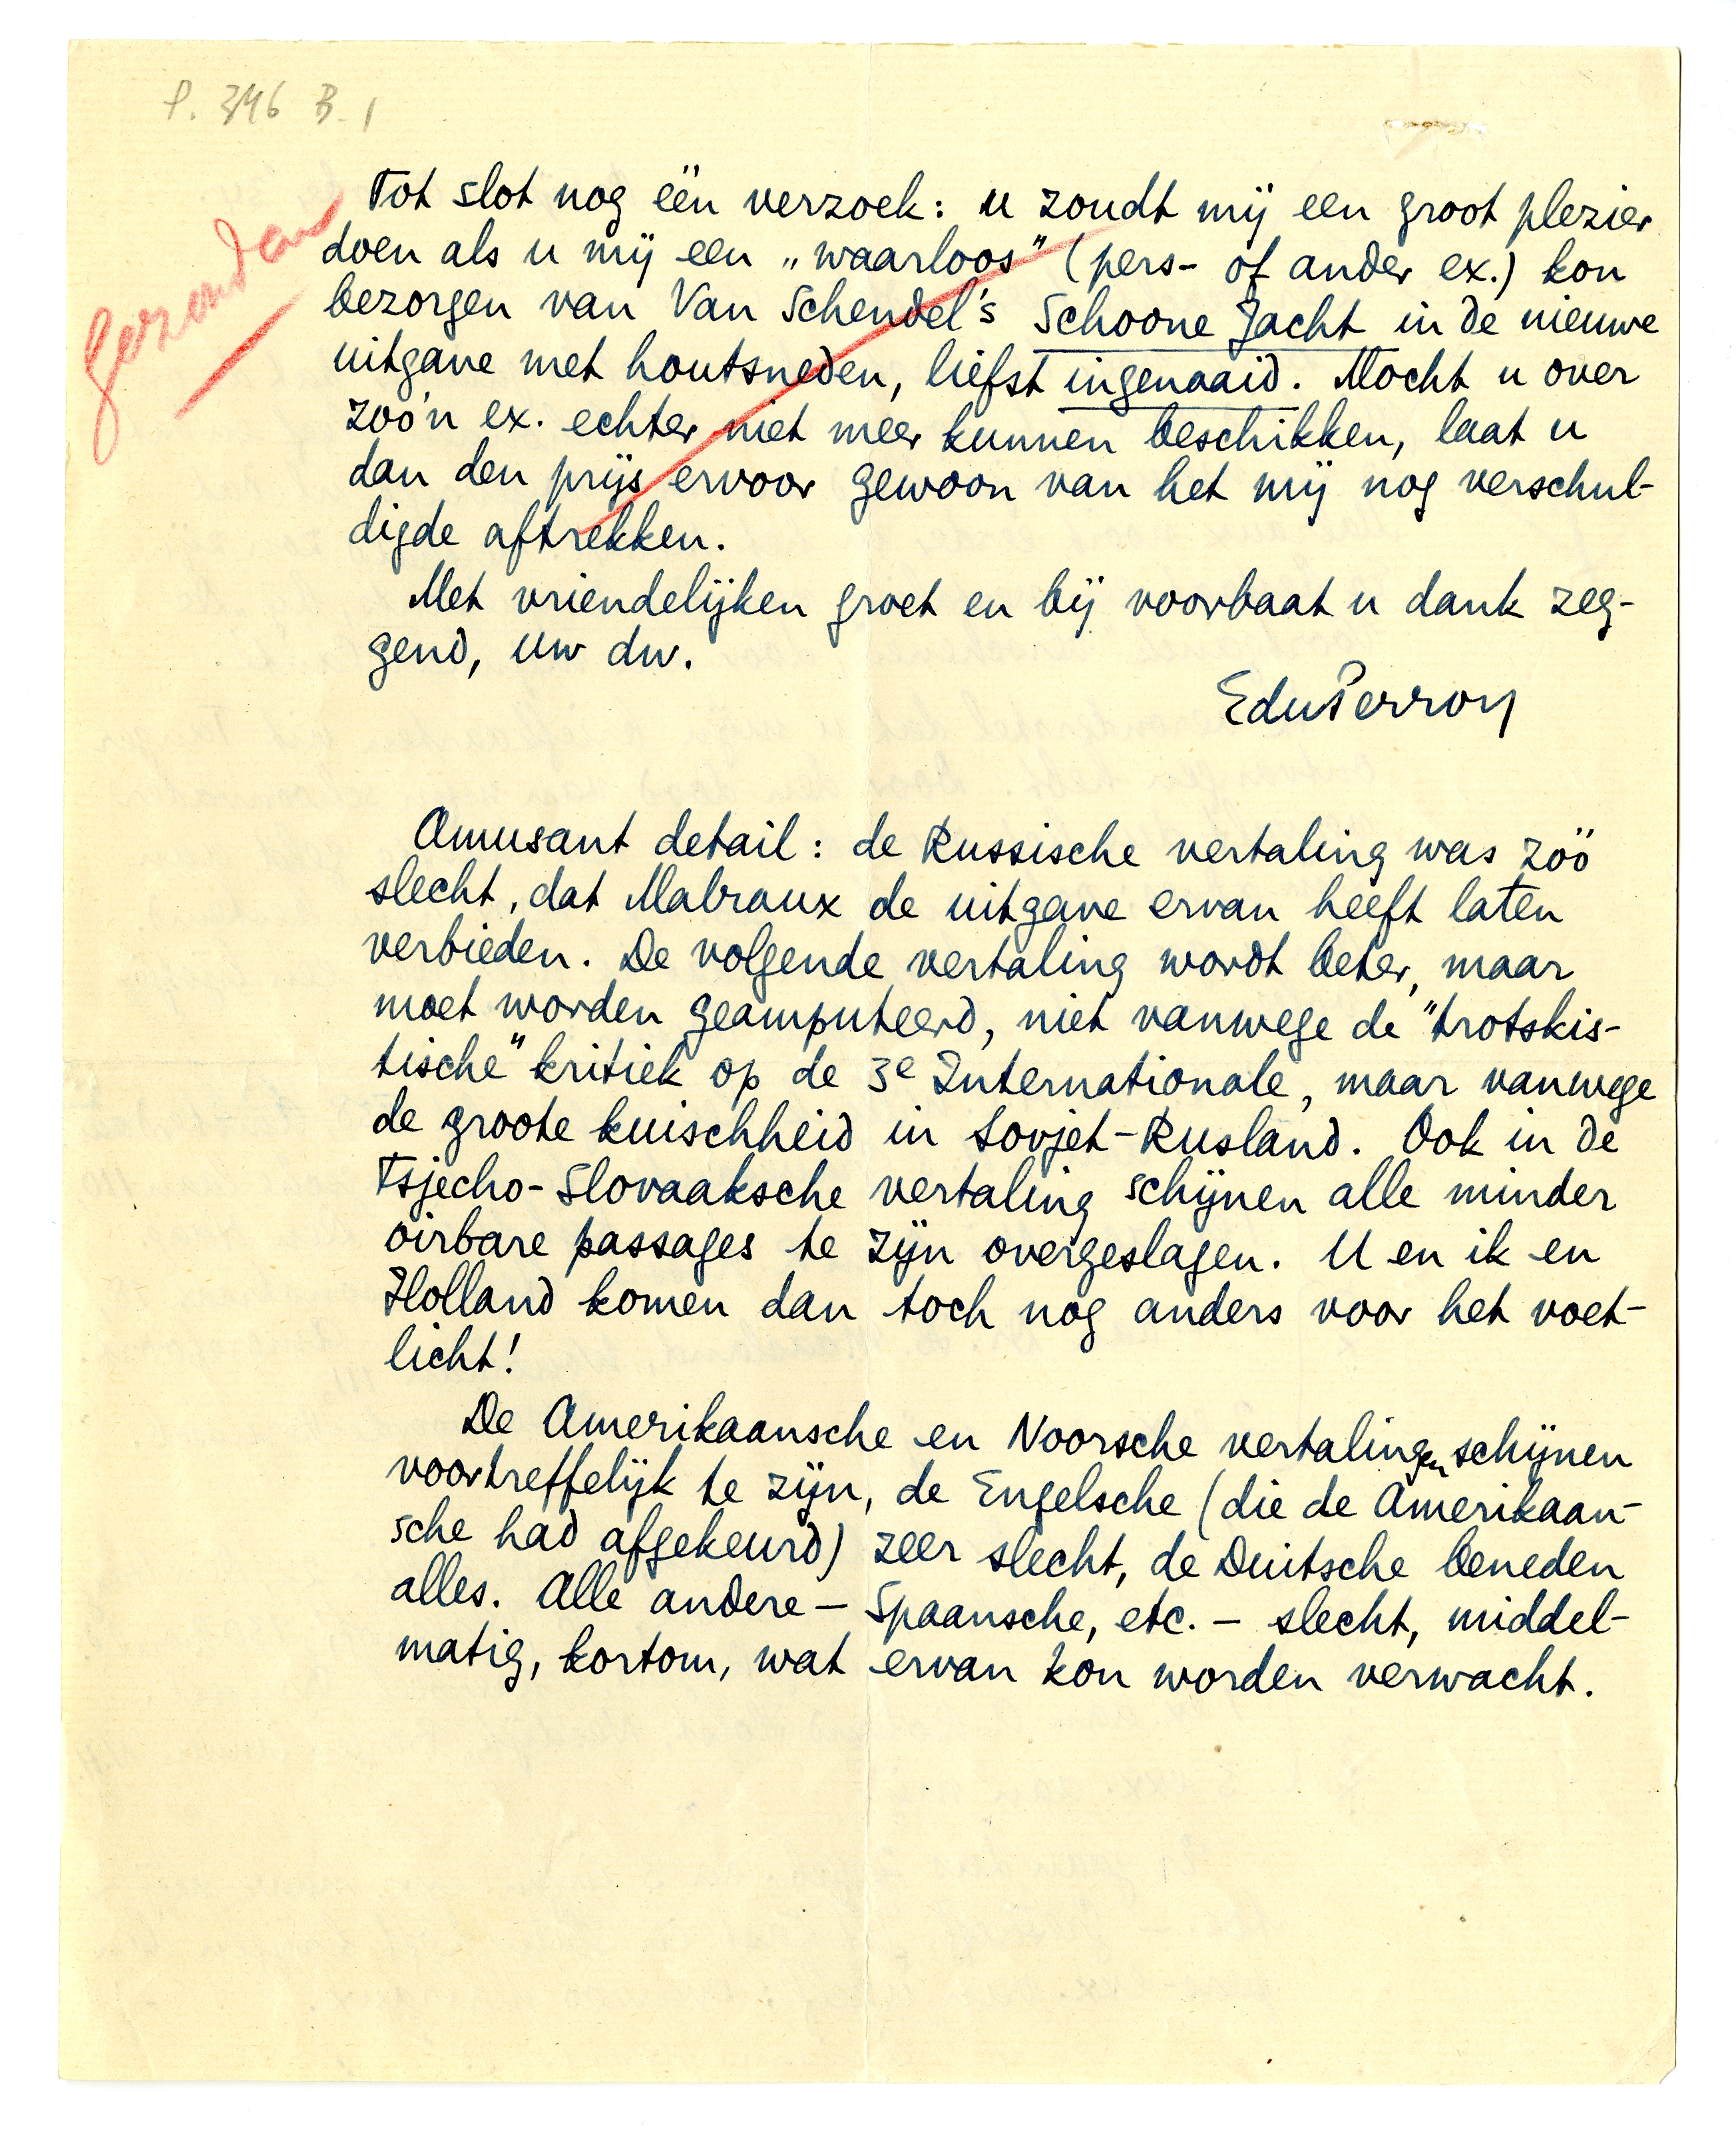 P. 346 B. 1
Gezonden
Tot slot nog één verzoek: u zoudt mij een groot plezier
doen als u mij een „waarloos" (pers- of ander ex.) kon
bezorgen van Van Schendel's Schoone Jacht in de nieuwe
uitgave met houtsneden, liefst ingenaaid. Mocht u over
zoo'n ex. echter niet meer kunnen beschikken, laat u
dan den prijs ervoor gewoon van het mij nog verschul-
digde aftrekken.
Met vriendelijken groet en bij voorbaat u dank zeg-
gend, uw dw.
EduPerron
Amusant detail: de Russische vertaling was zóó
slecht, dat Malraux de uitgave ervan heeft laten
verbieden. De volgende vertaling wordt beter, maar
moet worden geamputeerd, niet vanwege de "trotskis-
tische" kritiek op de 3e Internationale, maar vanwege
de groote kuischheid in Sovjet-Rusland. Ook in de
Tsjecho-Slovaaksche vertaling schijnen alle minder
oirbare passages te zijn overgeslagen. U en ik en
Holland komen dan toch nog anders voor het voet-
licht!
De Amerikaansche en Noorsche vertalingen schijnen
voortreffelijk te zijn, de Engelsche (die de Amerikaan-
sche had afgekeurd) zeer slecht, de Duitsche beneden
alles. Alle andere – Spaansche, etc. – slecht, middel-
matig, kortom, wat ervan kon worden verwacht.